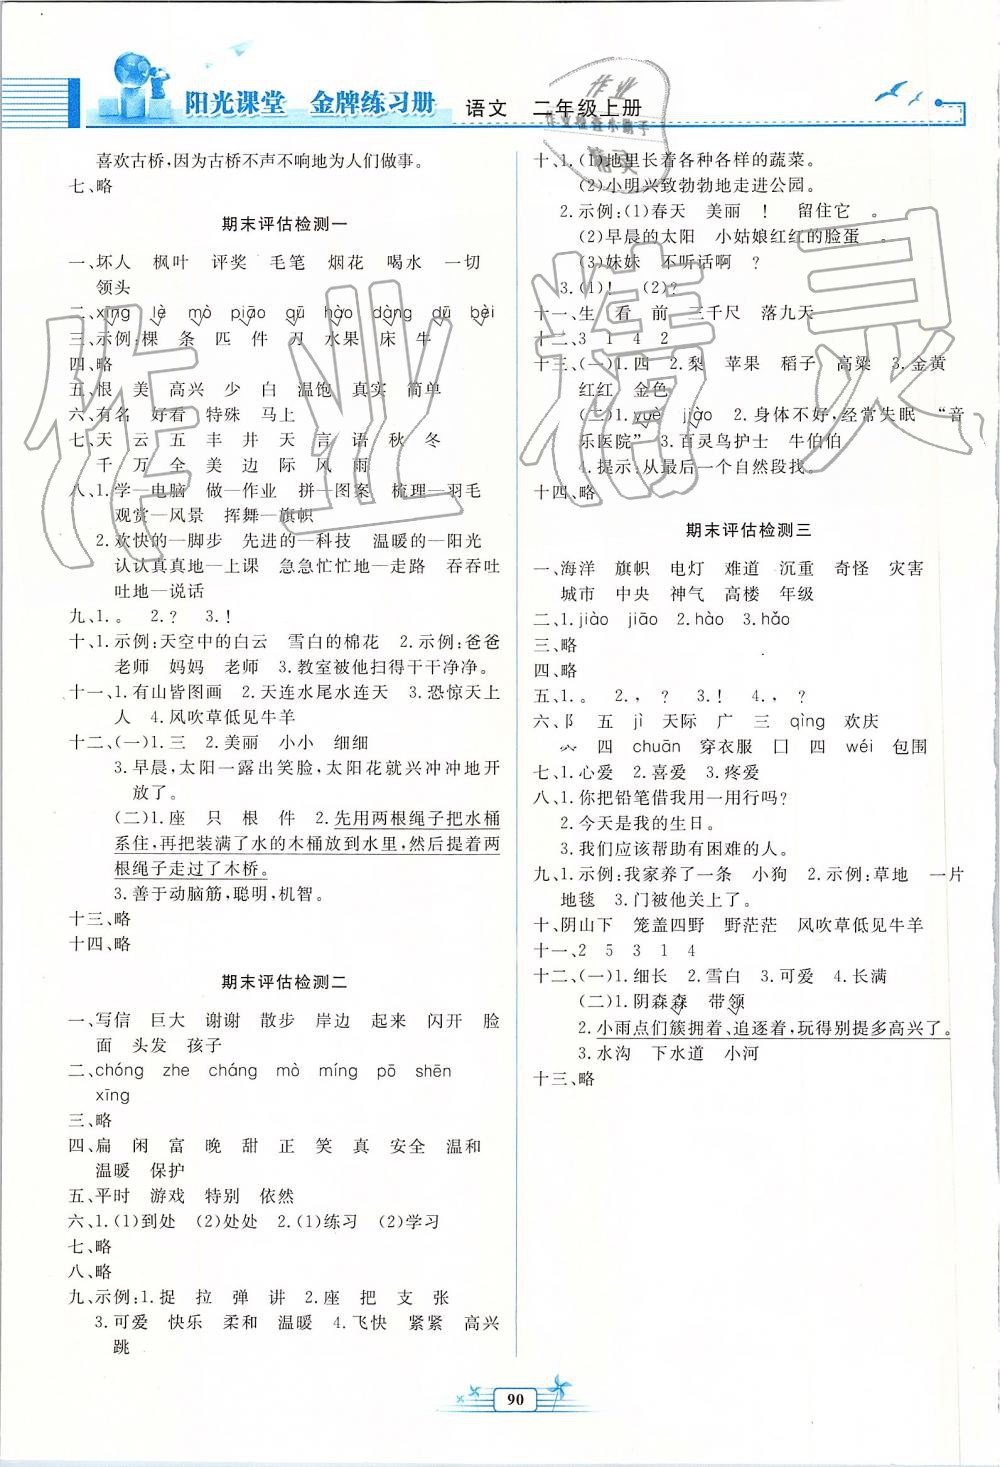 阳光课堂 金牌练习册 语文 二年级上册
喜欢古桥,因为古桥不声不响地为人们做事。
七、略
期末评估检测一
一、坏人 枫叶 评奖 毛笔 烟花 喝水 一切
领头
二、xīng lè mò piāo qū hào dàng dū bèi
三、示例:棵 条 匹 件 刀 水果 床 牛
四、略
五、恨 美 高兴 少 白 温饱 真实 简单
六、有名 好看 特殊 马上
七、天 云 五 丰 井 天 言 语 秋 冬
千 万 全 美 边 际 风 雨
八、1.学—电脑 做—作业 拼—图案 梳理—羽毛
观赏—风景 挥舞—旗帜
2.欢快的—脚步 先进的—科技 温暖的—阳光
认认真真地—上课 急急忙忙地—走路 吞吞吐
吐地—说话
九、1.。 2.? 3.!
十、1.示例:天空中的白云 雪白的棉花 2.示例:爸爸
老师 妈妈 老师 3.教室被他扫得干干净净。
十一、1.有山皆图画 2.天连水尾水连天 3.恐惊天上
人 4.风吹草低见牛羊
十二、(一)1.三 2.美丽 小小 细细
3.早晨,太阳一露出笑脸,太阳花就兴冲冲地开
放了。
(二)1.座 只 根 件 2.先用两根绳子把水桶
系住,再把装满了水的木桶放到水里,然后提着两
根绳子走过了木桥。
3.善于动脑筋,聪明,机智。
十三、略
十四、略
期末评估检测二
一、写信 巨大 谢谢 散步 岸边 起来 闪开 脸
面 头发 孩子
二、chóng zhe cháng mò míng pō shēn
xīng
三、略
四、扁 闲 富 晚 甜 正 笑 真 安全 温和
温暖 保护
五、平时 游戏 特别 依然
六、1.(1)到处 (2)处处 2.(1)练习 (2)学习
七、略
八、略
九、示例:1.捉 拉 弹 讲 2.座 把 支 张
3.可爱 快乐 柔和 温暖 4.飞快 紧紧 高兴
跳
十、1.(1)地里长着各种各样的蔬菜。
(2)小明兴致勃勃地走进公园。
2.示例:(1)春天 美丽 ! 留住它 。
(2)早晨的太阳 小姑娘红红的脸蛋 。
(3)妹妹 不听话啊 ?
3.(1)! (2)?
十一、生 看 前 三千尺 落九天
十二、3 1 4 2
十三、(一)1.四 2.梨 苹果 稻子 高粱 3.金黄
红红 金色
(二)1.yuè jiào 2.身体不好,经常失眠 “音
乐医院” 3.百灵鸟护士 牛伯伯
4.提示:从最后一个自然段找。
十四、略
期末评估检测三
一、海洋 旗帜 电灯 难道 沉重 奇怪 灾害
城市 中央 神气 高楼 年级
二、1.jiào jiāo 2.hào 3.hǎo
三、略
四、略
五、1.。 2., ? 3.! 4., ?
六、阝 五 jì 天际 广 三 qìng 欢庆
四 chuān 穿衣服 囗 四 wéi 包围
七、1.心爱 2.喜爱 3.疼爱
八、1.你把铅笔借我用一用行吗?
2.今天是我的生日。
3.我们应该帮助有困难的人。
九、1.示例:我家养了一条 小狗 2.示例:草地 一片
地毯 3.门被他关上了。
十、阴山下 笼盖四野 野茫茫 风吹草低见牛羊
十一、2 5 3 1 4
十二、(一)1.细长 2.雪白 3.可爱 4.长满
(二)1.阴森森 带领
2.小雨点们簇拥着、追逐着,玩得别提多高兴了。
3.水沟 下水道 小河
十三、略
90
作业精灵